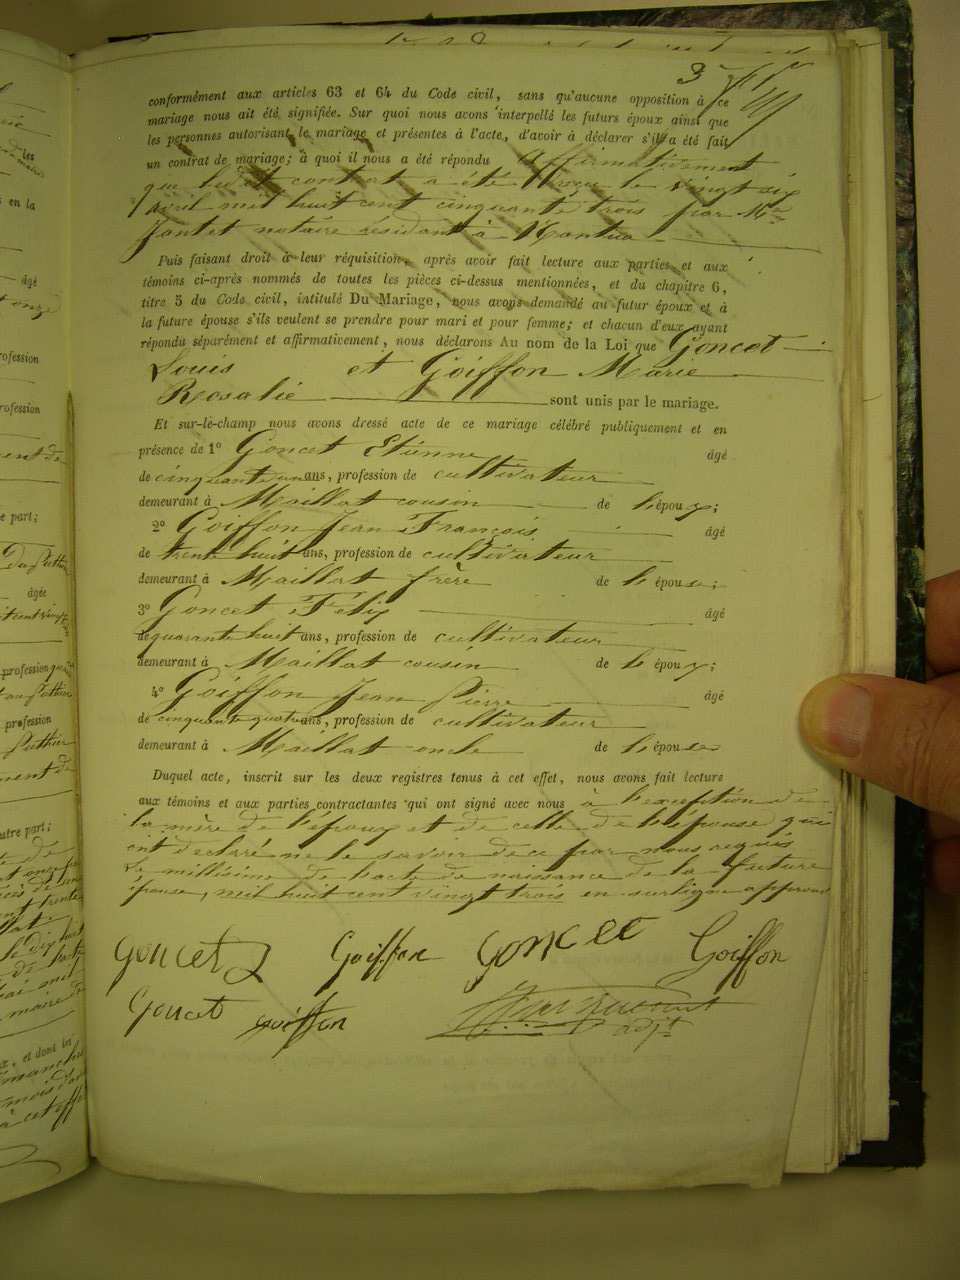 3
conformément aux articles 63 et 64 du Code civil, sans qu'aucune opposition à ce
mariage nous ait été signifiée. Sur quoi nous avons interpellé les futurs époux ainsi que
les personnes autorisant le mariage et présentes à l'acte, d'avoir à déclarer s'il a été fait
un contrat de mariage; à quoi il nous a été répondu affirmativement
que ledit contrat a été reçu le vingt six
avril mil huit cent cinquante trois par Me
Jantet notaire résidant à Nantua
Puis faisant droit à leur réquisition, après avoir fait lecture aux parties et aux
témoins ci-après nommés de toutes les pièces ci-dessus mentionnées, et du chapitre 6,
titre 5 du Code civil, intitulé Du Mariage, nous avons demandé au futur époux et à
la future épouse s'ils veulent se prendre pour mari et pour femme; et chacun d'eux ayant
répondu séparément et affirmativement, nous déclarons Au nom de la Loi que Goncet
Louis et Goiffon Marie
Rosalie sont unis par le mariage.
Et sur-le-champ nous avons dressé acte de ce mariage célébré publiquement et en
présence de 1° Goncet Etienne âgé
de cinquante un ans, profession de cultivateur
demeurant à Maillat cousin de l'époux;
2° Goiffon Jean François âgé
de trente huit ans, profession de cultivateur
demeurant à Maillat frère de l'épouse;
3° Goncet Félix âgé
de quarante huit ans, profession de cultivateur
demeurant à Maillat cousin de l'époux;
4° Goiffon Jean Pierre âgé
de cinquante quatre ans, profession de cultivateur
demeurant à Maillat oncle de l'épouse
Duquel acte, inscrit sur les deux registres tenus à cet effet, nous avons fait lecture
aux témoins et aux parties contractantes qui ont signé avec nous à l'exception de
la mère de l'époux et de celle de l'épouse qui
ont déclaré ne le savoir de ce par nous requis
Le millésime de l'acte de naissance de la future
épouse, mil huit cent vingt trois en surligne approuvé
Goncet Goiffon Goncet Goiffon
Goncet Goiffon
adjt